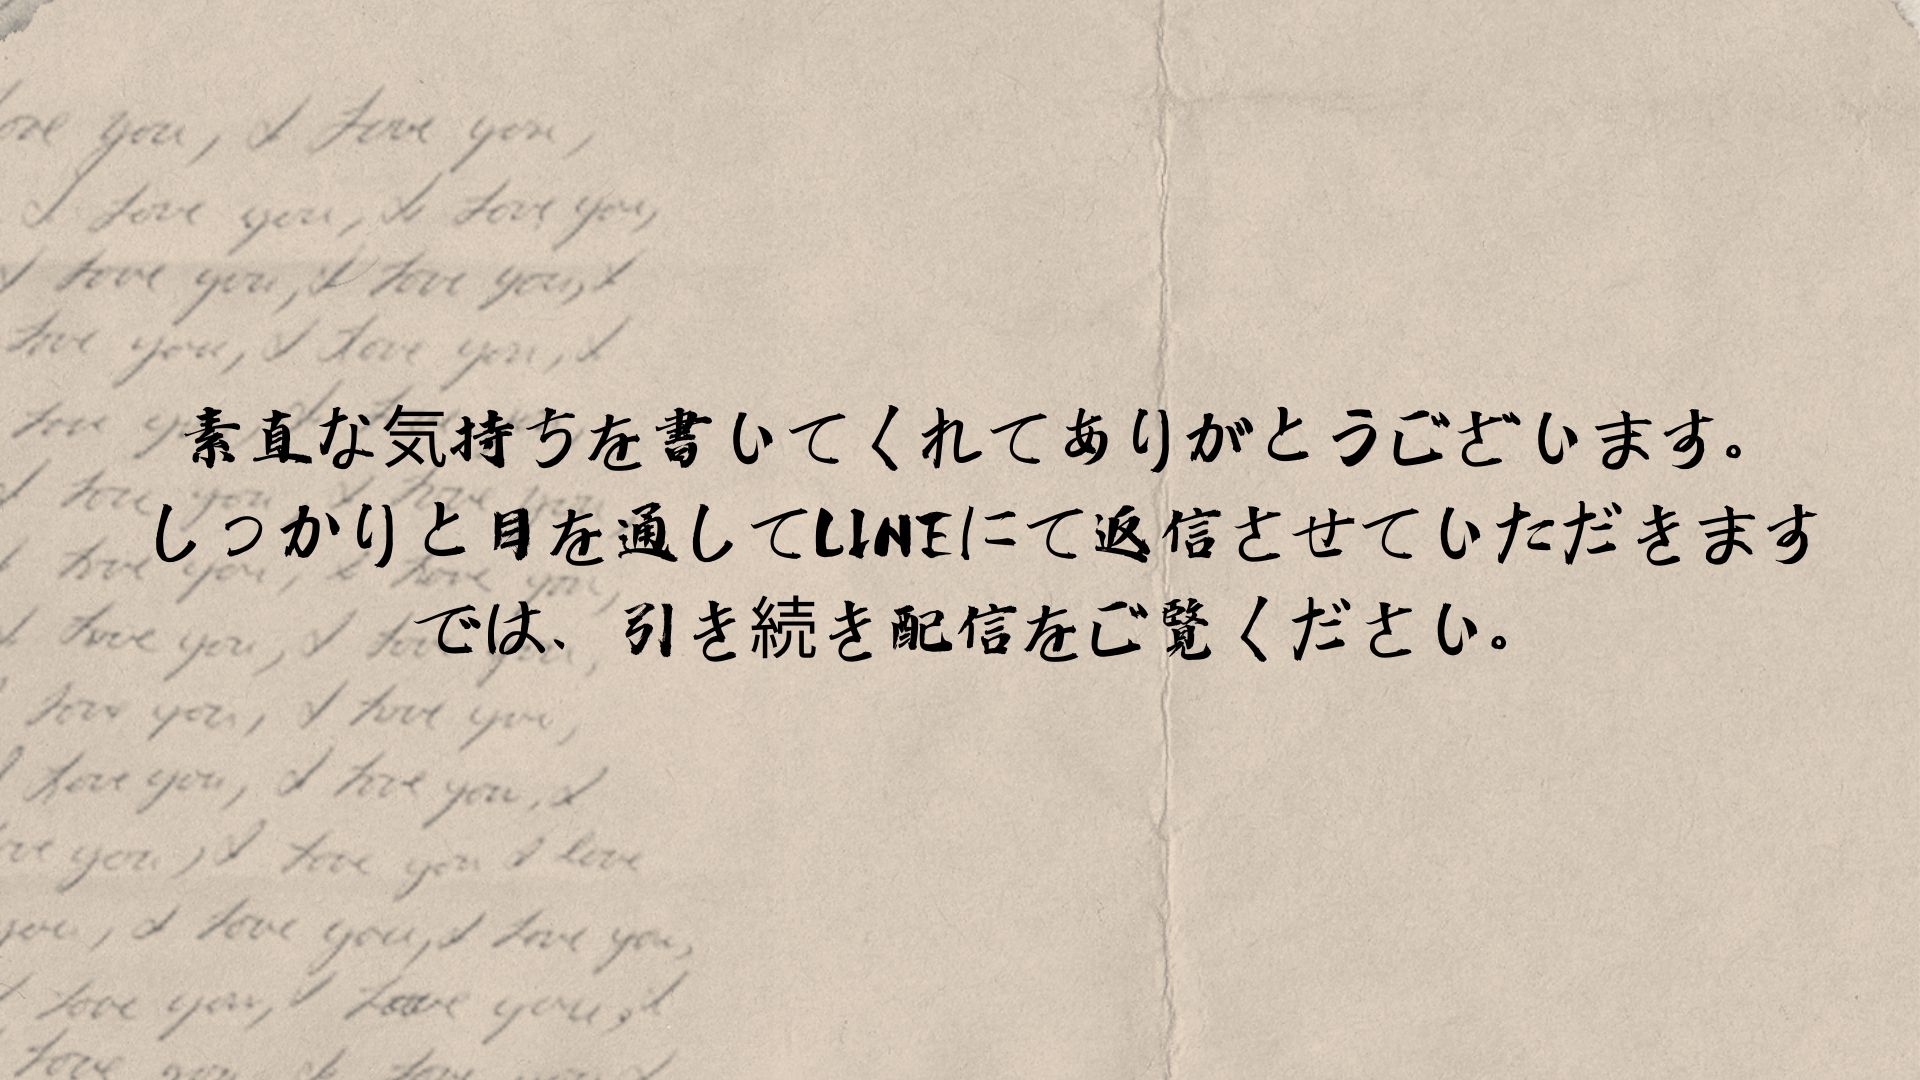 ove you, I love you,
I love you, I love you,
I love you, I love you, I
love you, I love you, I
love you, I
素直な気持ちを書いてくれてありがとうございます。
I love you, I love you
しっかりと目を通してLINEにて返信させていただきます
I love you, I love you,
では、引き続き配信をご覧ください。
I love you, I love you,
I love you, I love you,
I love you, I love you, I
ove you, I love you I love
you, I love you, I love you,
I love you, I love you, I
love you, I love you, I